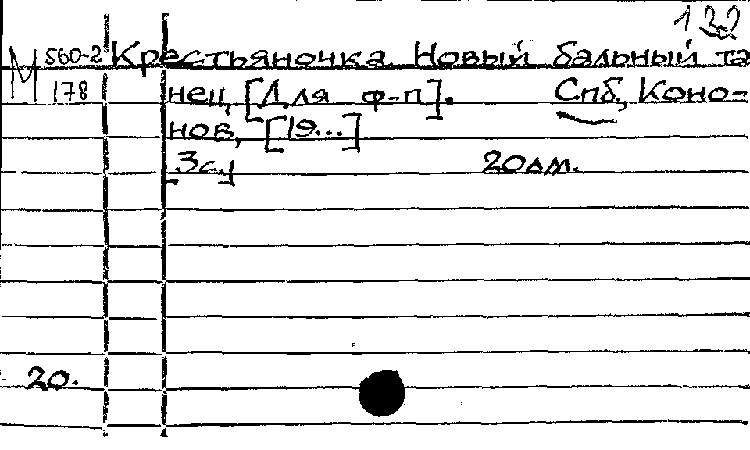 132
М 560-2 Крестьяночка. Новый бальный та
178 нец. [Для ф-п]. Спб, Коно-
нов, [19...]
[3с.] 20дм.
20.